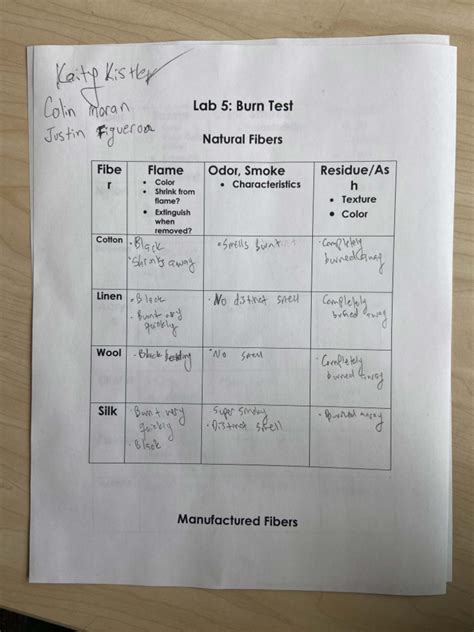 Kaity Kistler
Colin Moran
Justin Figueroa
Lab 5: Burn Test
Natural Fibers
Fibe
r
Flame
• Color
• Shrink from
flame?
• Extinguish
when
removed?
Odor, Smoke
• Characteristics
Residue/As
h
• Texture
• Color
Cotton
• Black
• Shrinks away
• Smells burnt
• Completely
burned away
Linen
• Black
• Burnt very
quickly
• No distinct smell
Completely
burned away
Wool
• Black
• No smell
• Completely
burned away
Silk
• Burnt very
quickly
• Black
Super smokey
• Distinct smell
• Burned away
Manufactured Fibers